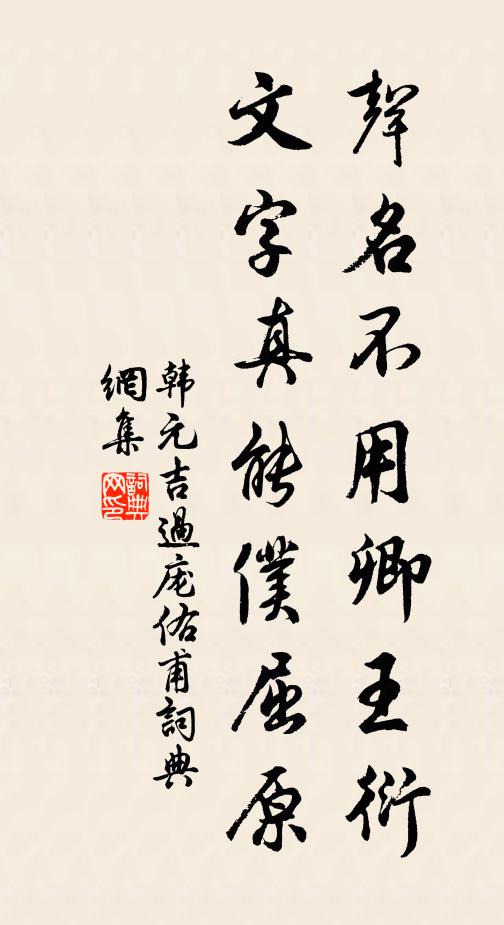 聲名不用卿王衍
文字真能僕屈原
韩元吉過庞佑甫詞典
網集
詞典網印